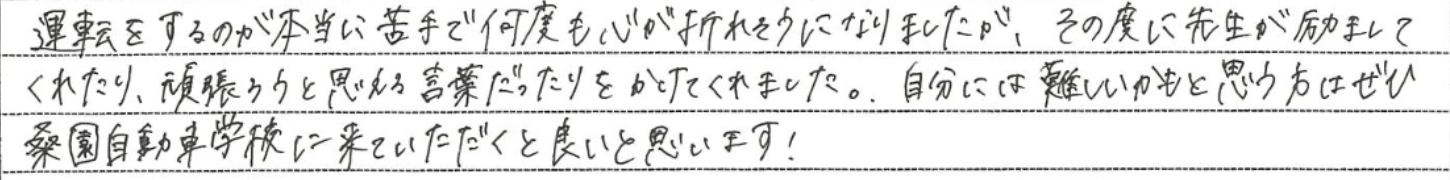 運転をするのが本当に苦手で何度も心が折れそうになりましたが、その度に先生が励まして
くれたり、頑張ろうと思える言葉だったりをかけてくれました。自分には難しいかもと思う方はぜひ
桑園自動車学校に来ていただくと良いと思います!